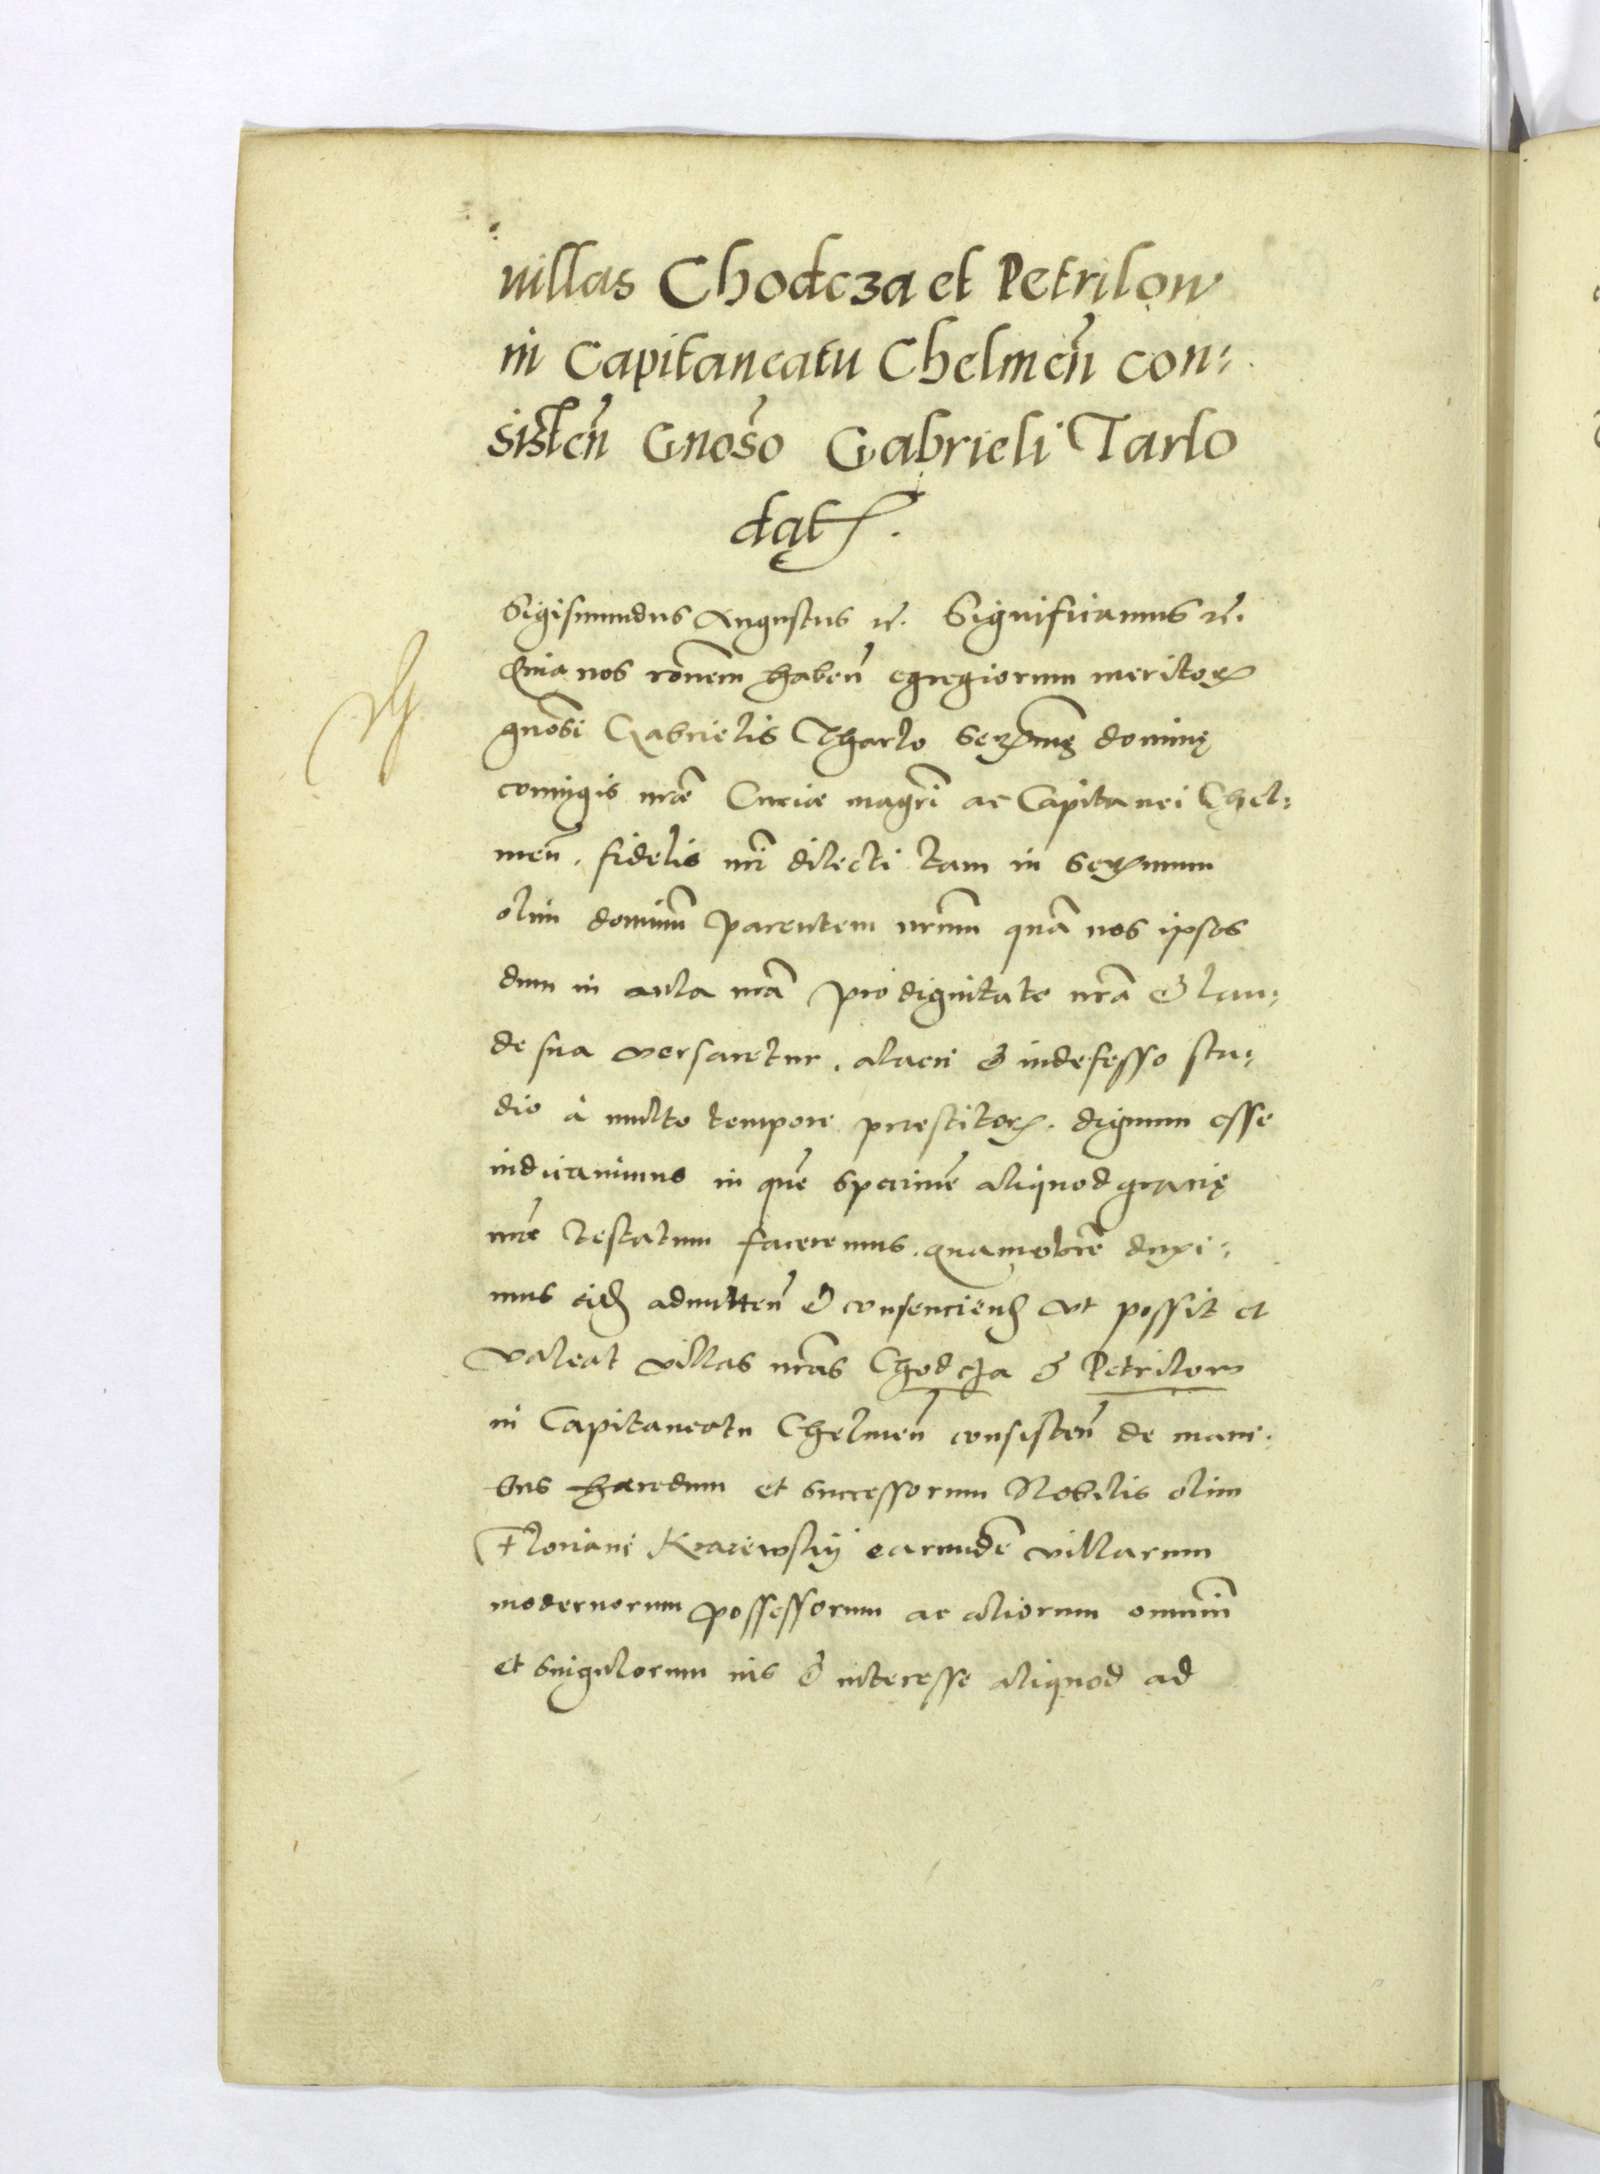 villas Chodcza et Petrilow
in Capitaneatu Chelmen̄ con:
sisten̄ Gnoso Gabrieli Tarlo
dat.
Sigismundus Augustus etc. Significamus etc.
Quia nos ronem haben̄ egregiorum meritor.
gnosi Gabrielis Tharlo Serme dominę
coniugis nrae Curiae magrī ac Capitanei Chel:
men̄. fidelis nrī dilecti tam in Sermum
olim dominū parentem nrum quā nos ipsos
dum in aula nrā pro dignitate nrā & lau:
de sua versaretur. alacri & indefesso stu:
dio à multo tempore praestitor. dignum esse
iudicavimus in quē specimē aliquod gratię
nrae testatum faceremus. quamobrē duxi:
mus eid. admitten̄ & consenciend. ut possit et
valeat villas nrās Chodcza & Petrilow
in Capitaneatu Chelmen̄ consisten̄ de mani:
bus haeredum et successorum Nobilis olim
Floriani earundē villarum
modernorum possessorum ac aliorum omniū
et singulorum ius & interesse aliquod ad